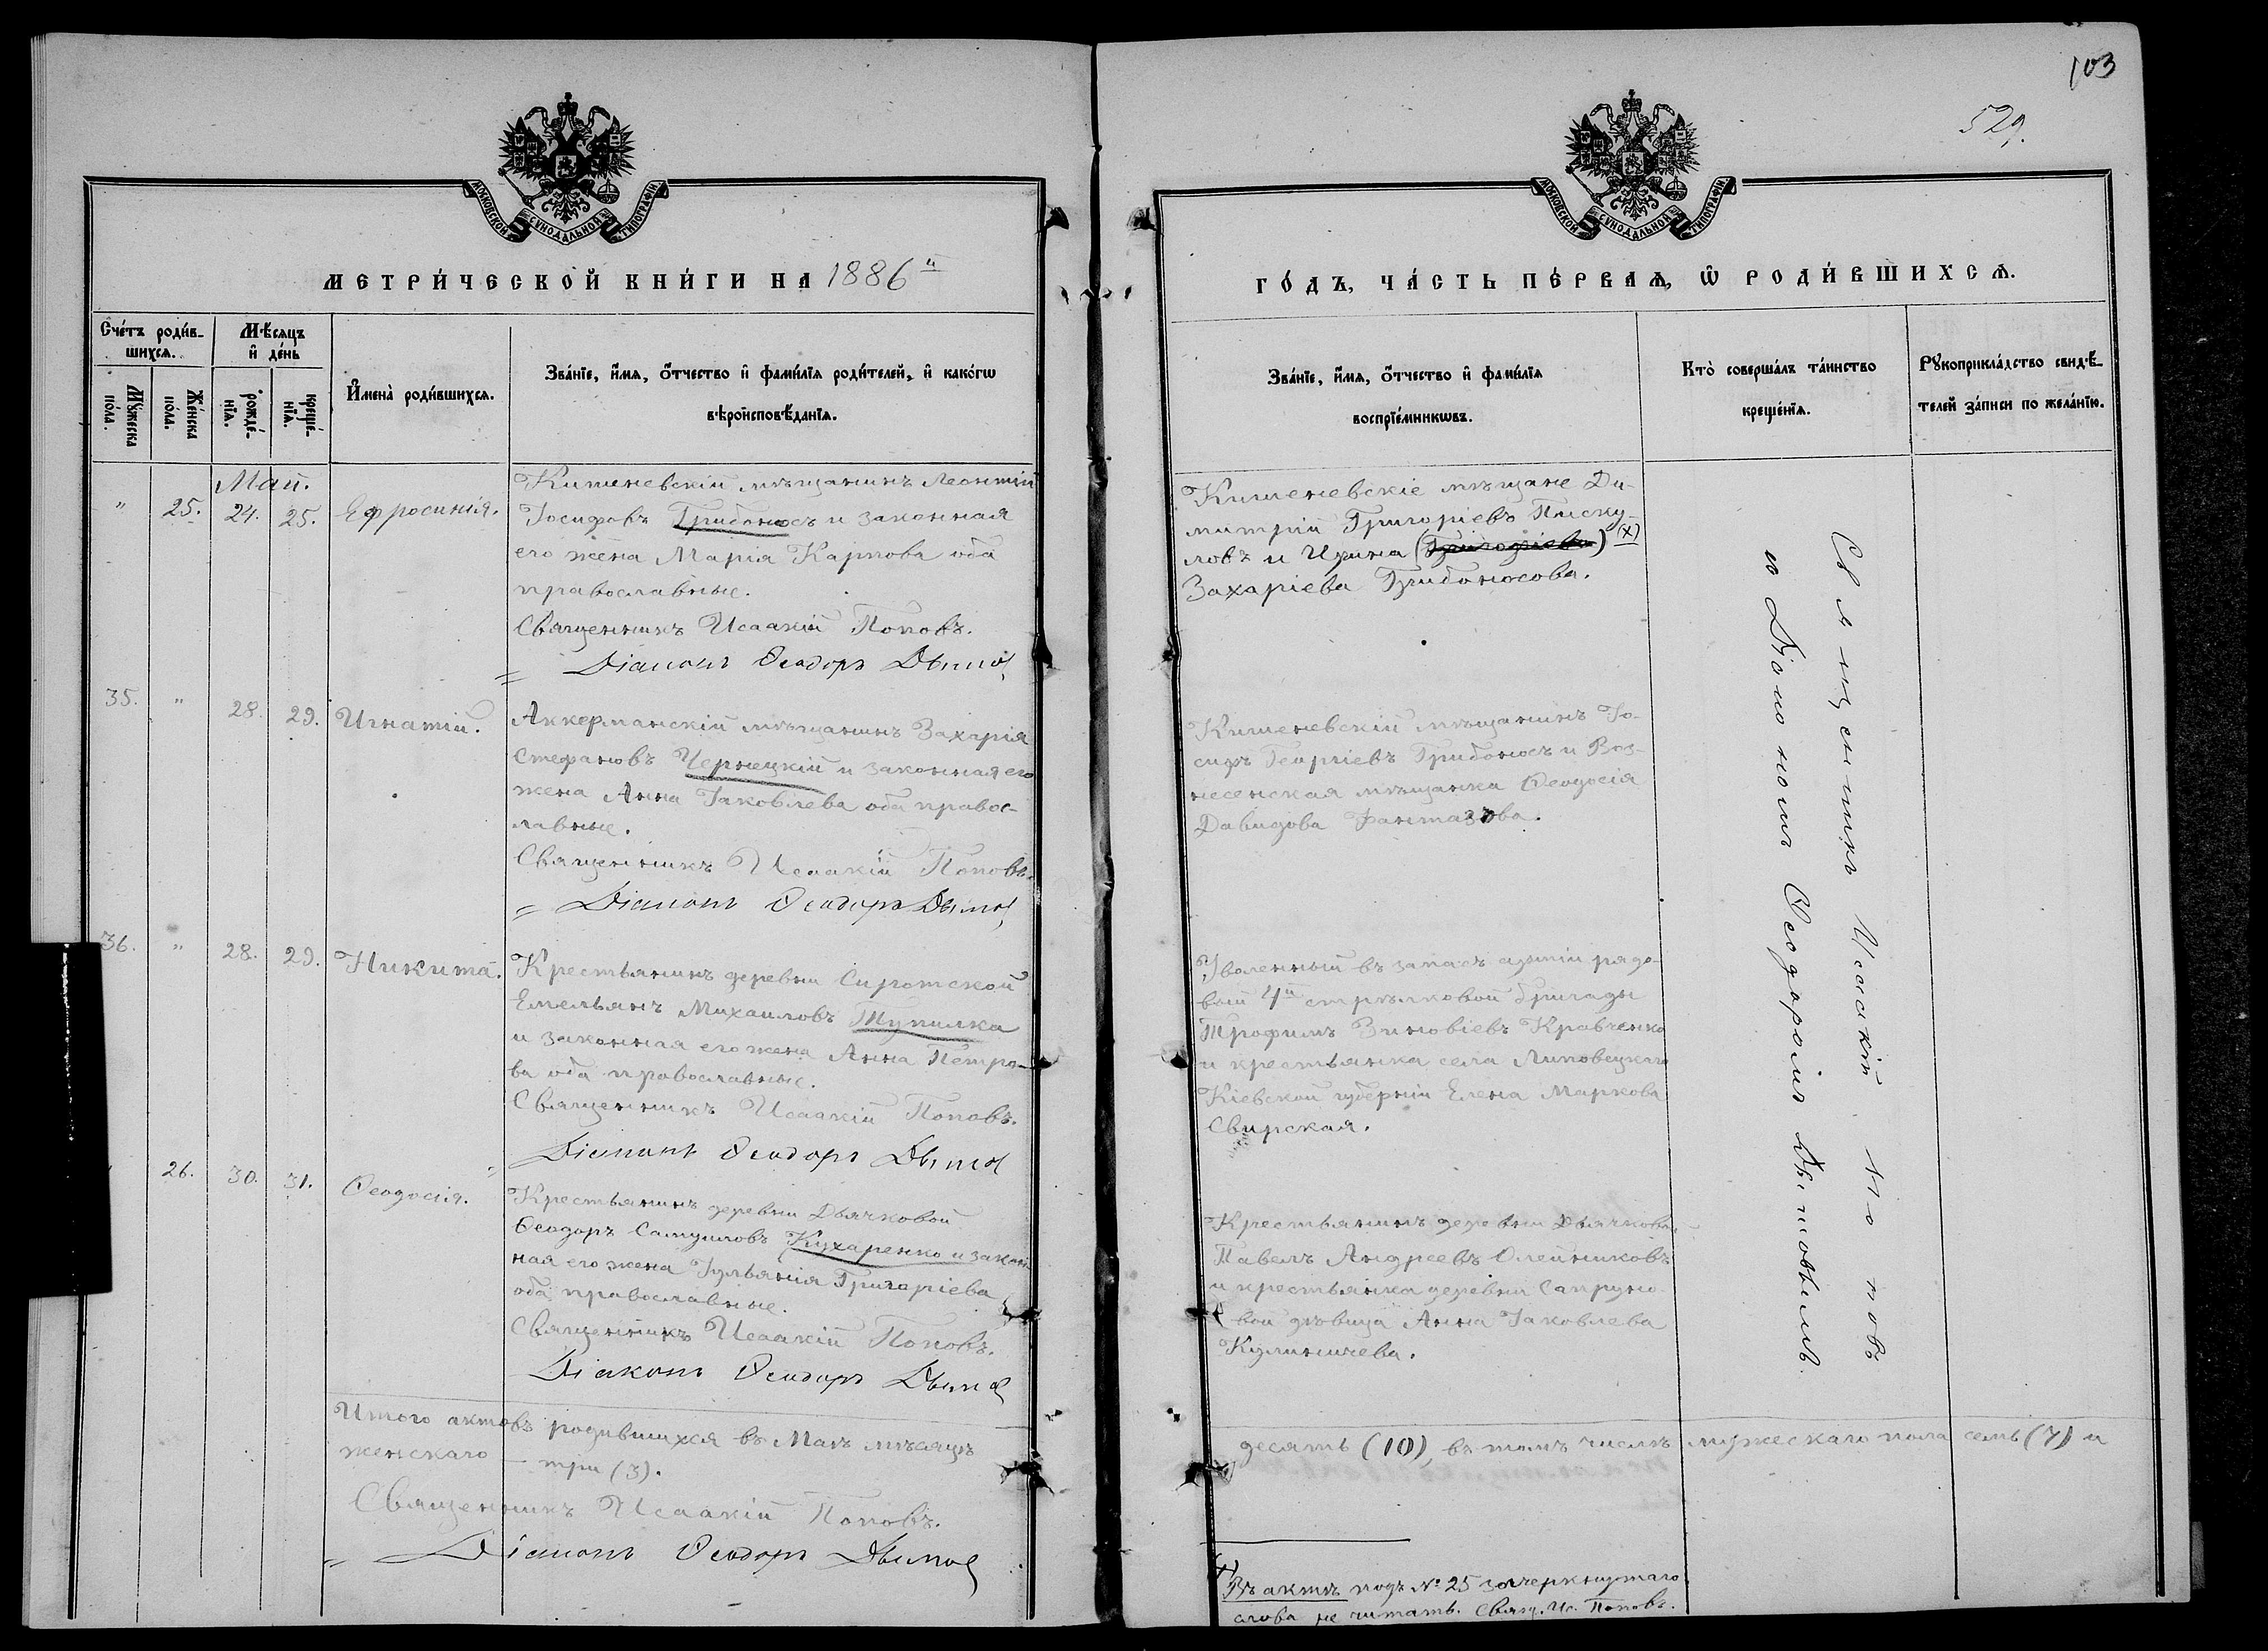 103
529.
МОСКОВСКОЙ СѴНОДАЛЬНОЙ ТИПОГРАФІИ.
МОСКОВСКОЙ СѴНОДАЛЬНОЙ ТИПОГРАФІИ.
МЕТРИ́ЧЕСКОЙ КНИ́ГИ НА 1886й
ГО́ДЪ, ЧА́СТЬ ПЕ́РВАѦ, Ѡ РОДИ́ВШИХСѦ.
Сче́тъ роди́в-
шихсѧ.
Мѣ́сѧцъ
и҆ де́нь
Мꙋ́жеска
по́ла.
Же́нска
по́ла.
рожде́-
нїѧ.
креще́-
нїѧ.
И҆мена̀ роди́вшихсѧ.
Зва́нїе, и҆́мѧ, ѻ҆́тчество и҆ фами́лїѧ роди́телей, и҆ како́гѡ
вѣроисповѣ́данїѧ.
Зва́нїе, и҆́мѧ, ѻ҆́тчество и҆ фами́лїѧ
воспрїе́мникѡвъ.
Кто̀ соверша́лъ та́инство
креще́нїѧ.
Рꙋкоприкла́дство свидѣ́-
телей за́писи по жела́нїю.
Май.
" 25. 24. 25. Ефросинія.
Кишеневскій мѣщанинъ Леонтій
Іосифовъ Грибоносъ и законная
его жена Марія Карпова оба
православные.
Священникъ Исаакій Поповъ.
" Діаконъ Ѳеодоръ Дымов
Кишеневскіе мѣщане Ди-
митрій Григоріевъ Писку-
ловъ и Ирина (Григоріева) (х)
Захаріева Грибоносова.
35. " 28. 29. Игнатій.
Аккерманскій мѣщанинъ Захарія
Стефановъ Чернецкій и законная его
жена Анна Іаковлева оба правос-
лавные.
Священникъ Исаакій Поповъ.
" Діаконъ Ѳеодоръ Дымов
Кишеневскій мѣщанинъ Іо-
сифъ Георгіевъ Грибоносъ и Воз-
несенская мѣщанка Ѳеодосія
Давидова Фантазова.
36. " 28. 29. Никита.
Крестьянинъ деревни Сиротской
Емельянъ Михаиловъ Тупилка
и законная его жена Анна Петро-
ва оба православные.
Священникъ Исаакій Поповъ.
" Діаконъ Ѳеодоръ Дымов
Уволенный въ запасъ арміи рядо-
вой 4й стрѣлковой бригады
Трофимъ Зиновіевъ Кравченко
и крестьянка села Липовецкаго
Кіевской губерніи Елена Маркова
Свирская.
26. 30. 31. Ѳеодосія.
Крестьянинъ деревни Дьячковой
Ѳеодоръ Самуиловъ Кухаренко и закон-
ная его жена Іульянія Григоріева
оба православные.
Священникъ Исаакій Поповъ.
Діаконъ Ѳеодоръ Дымов
Крестьянинъ деревни Дьячковой
Павелъ Андреевъ Олейниковъ
и крестьянка деревни Сапруно-
вой дѣвица Анна Іаковлева
Кулиничева.
Священникъ Исаакій Поповъ
съ Діакономъ Ѳеодоромъ Дымовымъ.
Итого актовъ родившихся въ Маѣ мѣсяцѣ десять (10), въ томъ числѣ мужескаго пола семь (7) и
женскаго – три (3).
Священникъ Исаакій Поповъ.
" Діаконъ Ѳеодоръ Дымов
х) Въ актѣ подъ № 25 зачеркнутаго
слова не читать. Свящ. Ис. Поповъ.